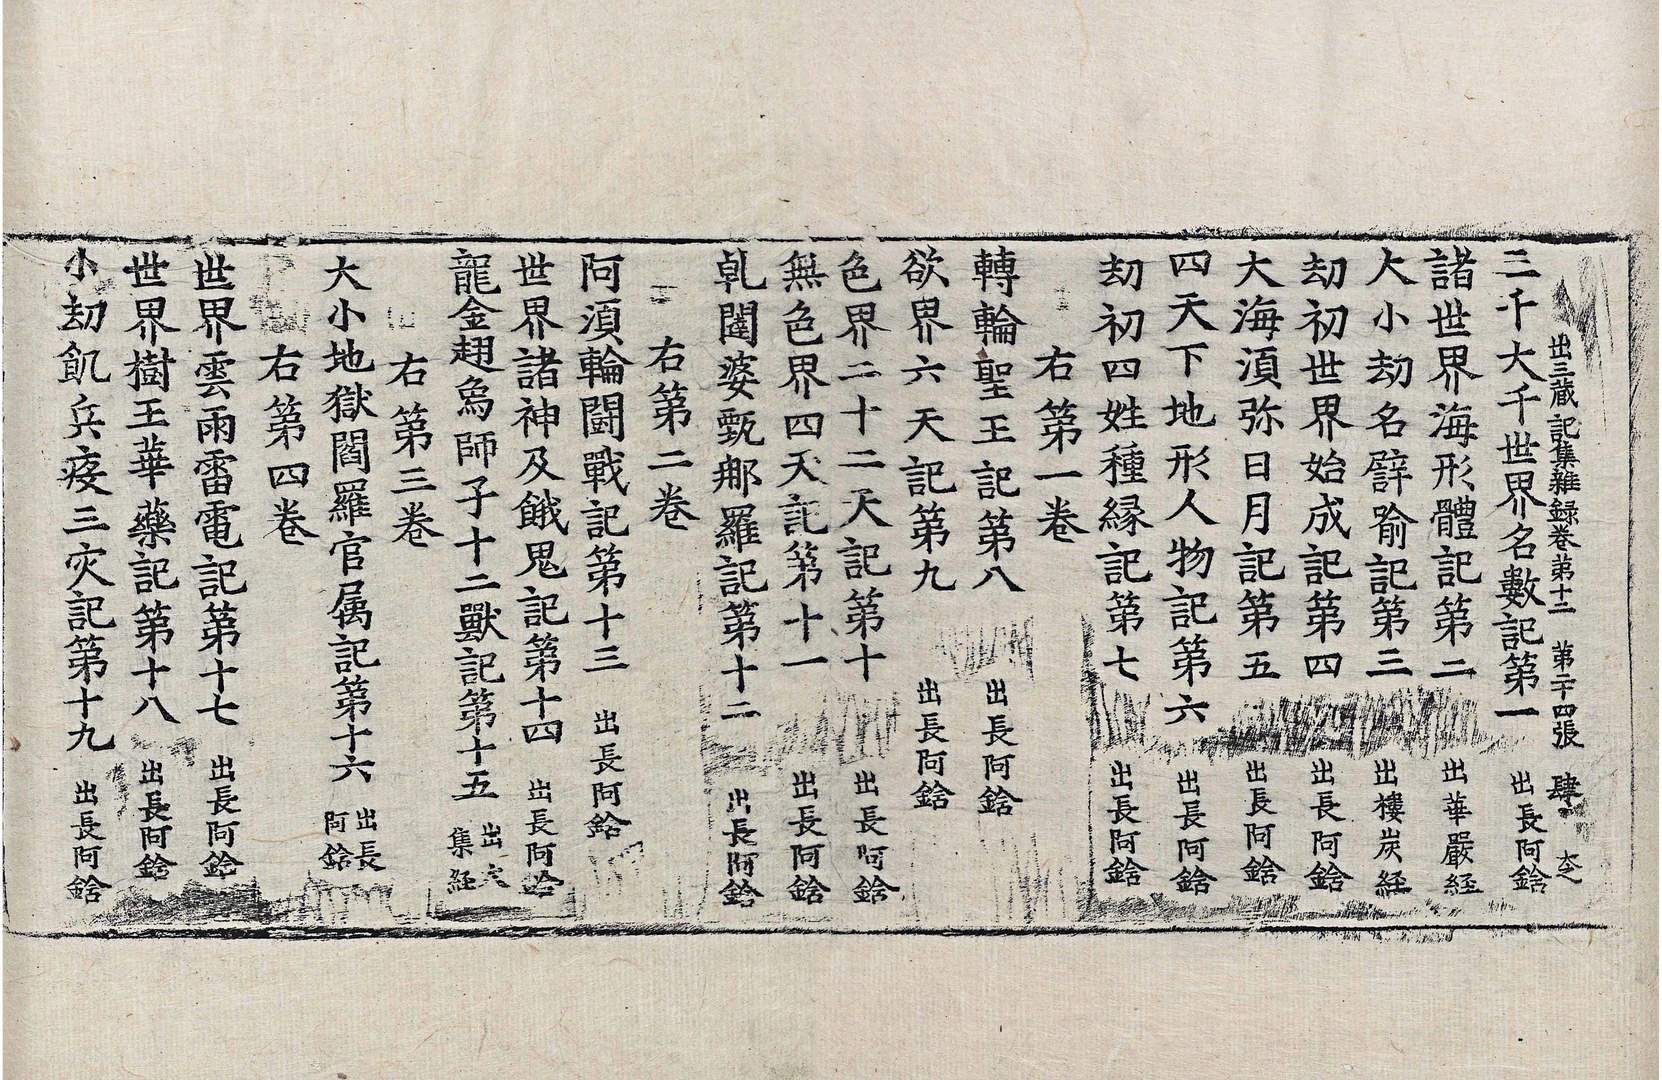 出三藏記集雜録卷第十二 第二十四張 肆
三千大千世界名數記第一 出長阿鋡
諸世界海形體記第二 出華嚴経
大小劫名譬喻記第三 出樓炭経
劫初世界始成記第四 出長阿鋡
大海湏弥日月記第五 出長阿鋡
四天下地形人物記第六 出長阿鋡
劫初四姓種緣記第七 出長阿鋡
右第一卷
轉輪聖王記第八 出長阿鋡
欲界六天記第九 出長阿鋡
色界二十二天記第十 出長阿鋡
無色界四天記第十一 出長阿鋡
乹闥婆甄那羅記第十二 出長阿鋡
右第二卷
阿湏輪鬪戰記第十三 出長阿鋡
世界諸神及餓鬼記第十四 出長阿鋡
龍金翅鳥師子十二獸記第十五 出六集経
右第三卷
大小地獄閻羅官属記第十六 出長阿鋡
右第四卷
世界雲雨雷電記第十七 出長阿鋡
世界樹王華藥記第十八 出長阿鋡
小劫飢兵疫三灾記第十九 出長阿鋡